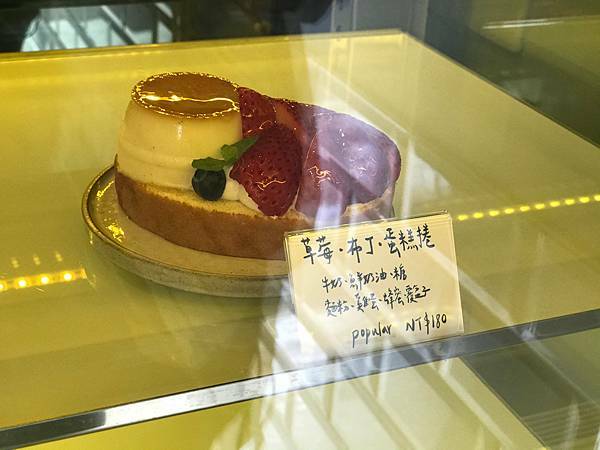 草莓·布丁·蛋糕捲
牛奶·鮮奶油·糖
麵粉·雞蛋·蜂蜜
popular NT$180